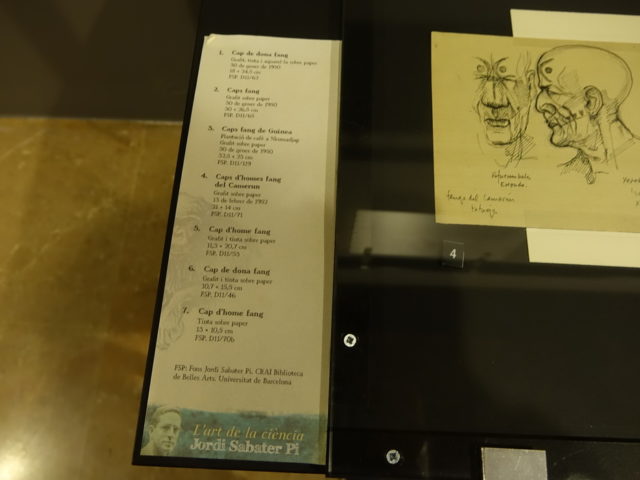 1. Cap de dona fang
Grafit, tinta i aquarel·la sobre paper
30 de gener de 1950
FSP. D11/63
2. Caps fang
Grafit sobre paper
30 de gener de 1950
FSP. D11/65
3. Caps fang de Guinea
Plantació de cafè a Nkumadjap
Grafit sobre paper
30 de gener de 1950
FSP. D11/129
4. Caps d'homes fang
del Camerun
Grafit sobre paper
13 de febrer de 1952
21 × 14 cm
FSP. D11/71
5. Cap d'home fang
Grafit i tinta sobre paper
FSP. D11/55
6. Cap de dona fang
Grafit i tinta sobre paper
10,7 × 15,5 cm
FSP. D11/46
7. Cap d'home fang
Tinta sobre paper
15 × 10,5 cm
FSP. D11/70b
FSP: Fons Jordi Sabater Pi. CRAI Biblioteca
de Belles Arts. Universitat de Barcelona
L'art de la ciència
Jordi Sabater Pi
4
fangs del Camerun